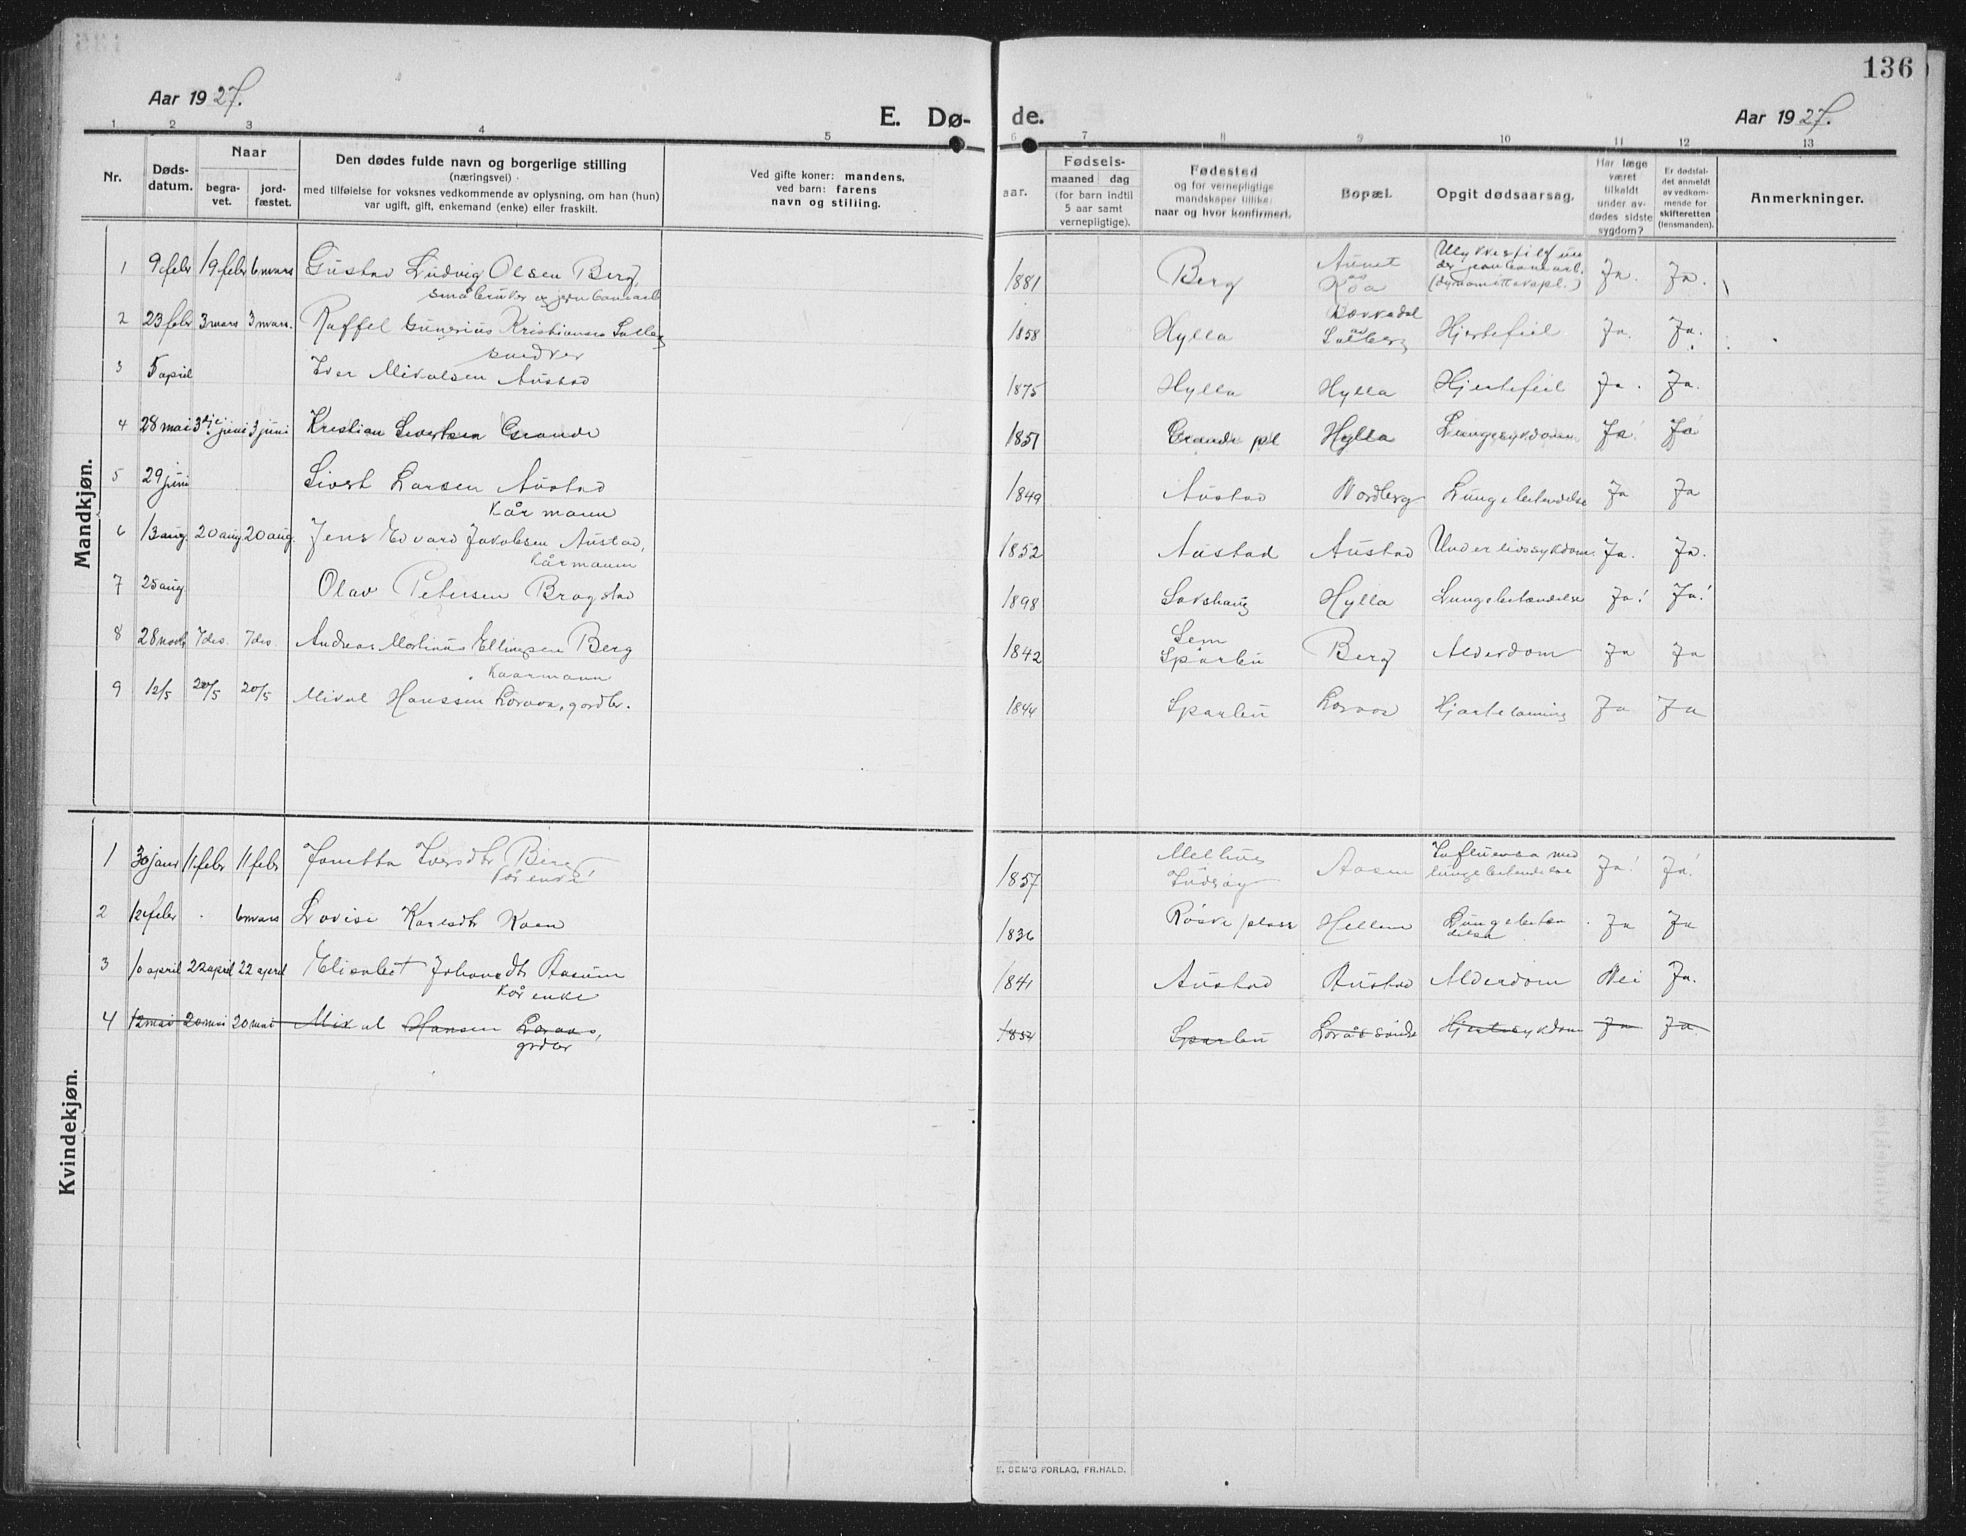 136
Aar 1927.
E. Dø-
de.
Aar 1927.
1 2 3 4 5 6 7 8 9 10 11 12 13
Nr.
Døds-
datum.
Naar
begra-
vet.
jord-
fæstet.
Den dødes fulde navn og borgerlige stilling
(næringsvei)
med tilføielse for voksnes vedkommende av oplysning, om han (hun)
var ugift, gift, enkemand (enke) eller fraskilt.
Ved gifte koner: mandens,
ved barn: farens
navn og stilling.
aar.
Fødsels-
maaned dag
(for barn indtil
5 aar samt
vernepligtige).
Fødested
og for vernepligtige
mandskaper tillike:
naar og hvor konfirmert.
Bopæl.
Opgit dødsaarsag.
Har læge
været
tilkaldt
under av-
dødes sidste
sygdom?
Er dødsfal-
det anmeldt
av vedkom-
mende for
skifteretten
(lensmanden).
Anmerkninger.
Mandkjøn.
1 9 febr 19 febr 6 mars Gustav Ludvig Olsen Berg, 1881 Berg Ja. Ja.
småbruker og jernbanearb
2 23 febr 3 mars 3 mars. Kristiansen 1858 Hylla Hjertefeil Ja. Ja.
snedker
3 5 april Iver Mikalsen Austad 1875 Hylla Hylla Hjertefeil Ja. Ja.
4 28 mai 3 juni 3 juni Kristian Sivertsen Grande 1851 Grande pl Hylla Lungesykdom Ja Ja
5 29 juni Sivert Larsen Austad 1849 Austad Nordberg Lungebetendelse Ja Ja
Kårmann
6 13 aug 20 aug 20 aug. Jens Edvard Jakobsen Austad, 1852 Austad Austad Underlivssykdom Ja. Ja.
Kårmann
7 25 aug Olav Petersen Bragstad 1898 Hylla Lungebetændelse Ja! Ja!
8 28 novb 7 des. 7 des. Andreas Martinus Ellingsen Berg 1842 Sem Sparbu Berg Alderdom Ja Ja
Kaarmann
9 12/5 20/5 20/5 Mikal Hanssen Loraas, gardbr. 1844 Sparbu Loraas Hjertelamning Ja Ja
Kvindekjøn.
1 30 janr 11 febr 11 febr Jonetta Iversdtr Berg 1857 Melhus Inderøy Aasen Influensa med lungebetendelse Ja! Ja!
Kårenke
2 12 febr . 6 mars Lovise Karlsdtr Koen 1836 Røskè plass Hellem Lungebeten delse Ja Ja
3 10 april 22 april 22 april Elisabet Johansdtr Aasum 1841 Austad Austad Alderdom Nei Ja.
Kårenke
4 12 mai 20 mai 20 mai Mikal Hansen Loraas, 1834 Sparbu Hjertesykdom Ja Ja
grdbr
E. SEM'S FORLAG, FR.HALD.